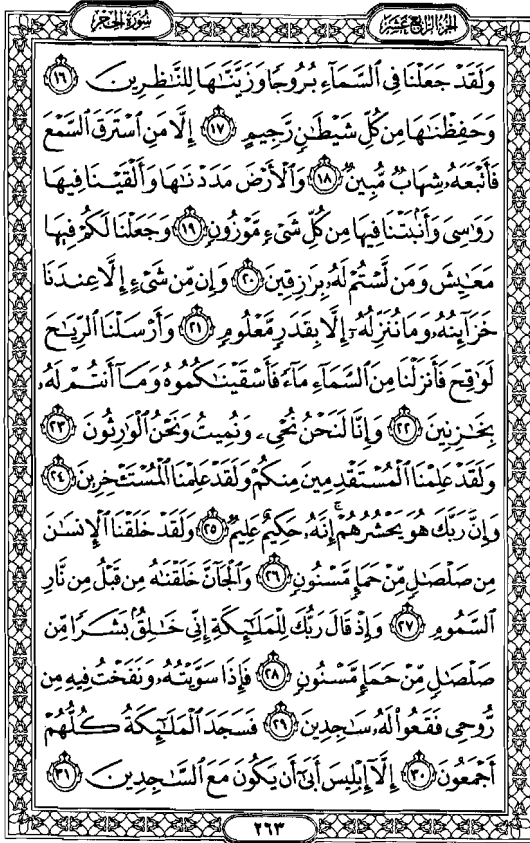 سُورَةُ الحِجْرِ
الجُزءُ الرَّابِعَ عَشَرَ
وَلَقَدْ جَعَلْنَا فِي ٱلسَّمَآءِ بُرُوجًا وَزَيَّنَّٰهَا لِلنَّٰظِرِينَ ١٦
وَحَفِظْنَٰهَا مِن كُلِّ شَيْطَٰنٍ رَّجِيمٍ ١٧ إِلَّا مَنِ ٱسْتَرَقَ ٱلسَّمْعَ
فَأَتْبَعَهُۥ شِهَابٌ مُّبِينٌ ١٨ وَٱلْأَرْضَ مَدَدْنَٰهَا وَأَلْقَيْنَا فِيهَا
رَوَٰسِىَ وَأَنۢبَتْنَا فِيهَا مِن كُلِّ شَىْءٍ مَّوْزُونٍ ١٩ وَجَعَلْنَا لَكُمْ فِيهَا
مَعَٰيِشَ وَمَن لَّسْتُمْ لَهُۥ بِرَٰزِقِينَ ٢٠ وَإِن مِّن شَىْءٍ إِلَّا عِندَنَا
خَزَآئِنُهُۥ وَمَا نُنَزِّلُهُۥٓ إِلَّا بِقَدَرٍ مَّعْلُومٍ ٢١ وَأَرْسَلْنَا ٱلرِّيَٰحَ
لَوَٰقِحَ فَأَنزَلْنَا مِنَ ٱلسَّمَآءِ مَآءً فَأَسْقَيْنَٰكُمُوهُ وَمَآ أَنتُمْ لَهُۥ
بِخَٰزِنِينَ ٢٢ وَإِنَّا لَنَحْنُ نُحْىِۦ وَنُمِيتُ وَنَحْنُ ٱلْوَٰرِثُونَ ٢٣
وَلَقَدْ عَلِمْنَا ٱلْمُسْتَقْدِمِينَ مِنكُمْ وَلَقَدْ عَلِمْنَا ٱلْمُسْتَـْٔخِرِينَ ٢٤
وَإِنَّ رَبَّكَ هُوَ يَحْشُرُهُمْ ۚ إِنَّهُۥ حَكِيمٌ عَلِيمٌ ٢٥ وَلَقَدْ خَلَقْنَا ٱلْإِنسَٰنَ
مِن صَلْصَٰلٍ مِّنْ حَمَإٍ مَّسْنُونٍ ٢٦ وَٱلْجَآنَّ خَلَقْنَٰهُ مِن قَبْلُ مِن نَّارِ
ٱلسَّمُومِ ٢٧ وَإِذْ قَالَ رَبُّكَ لِلْمَلَٰٓئِكَةِ إِنِّى خَٰلِقٌۢ بَشَرًا مِّن
صَلْصَٰلٍ مِّنْ حَمَإٍ مَّسْنُونٍ ٢٨ فَإِذَا سَوَّيْتُهُۥ وَنَفَخْتُ فِيهِ مِن
رُّوحِى فَقَعُوا۟ لَهُۥ سَٰجِدِينَ ٢٩ فَسَجَدَ ٱلْمَلَٰٓئِكَةُ كُلُّهُمْ
أَجْمَعُونَ ٣٠ إِلَّآ إِبْلِيسَ أَبَىٰٓ أَن يَكُونَ مَعَ ٱلسَّٰجِدِينَ ٣١
٢٦٣